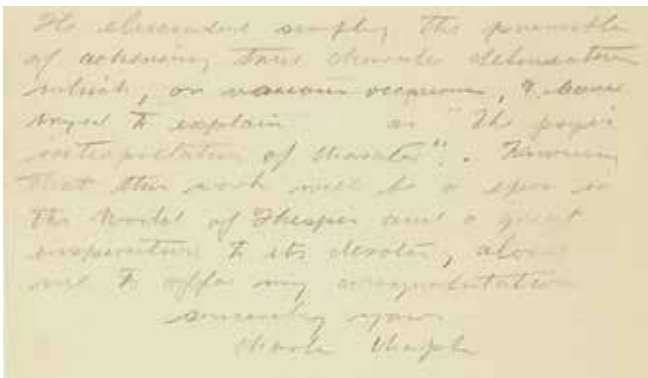 simply the
of achieving true character delineation
which, on various occasions, I have
to explain as "The
interpretation of character". Knowing
that this work will be a
the World of Thespis and a great
inspiration to its devotees, allow
me to offer my congratulations
sincerely yours